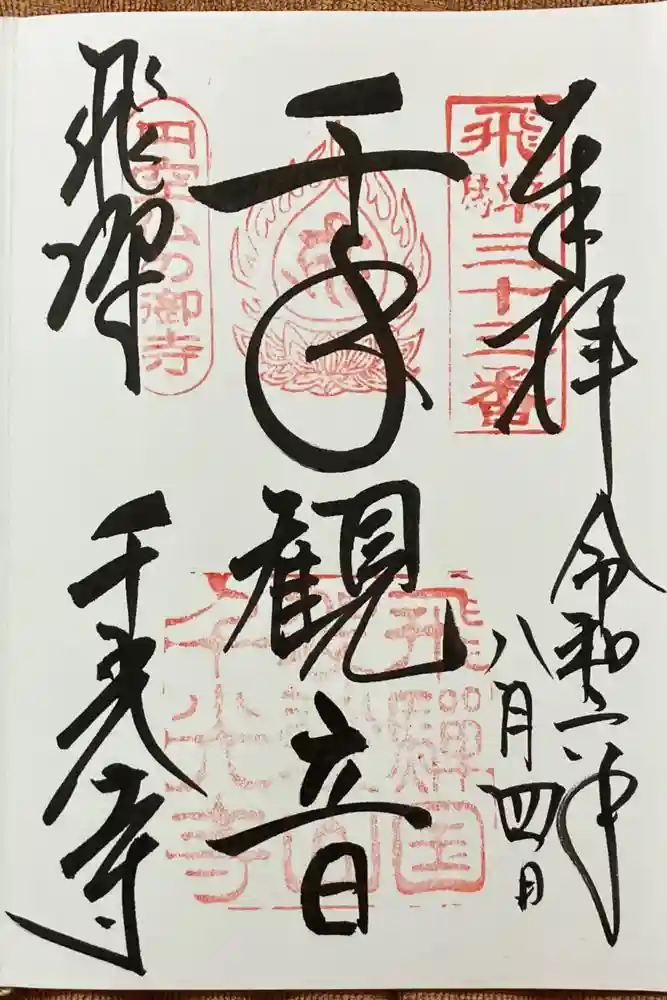 奉拝
令和六年
八月四日
飛騨三十三番
千手観音
飛騨国
袈裟山
千光寺
円空仏の御寺
飛騨
千光寺